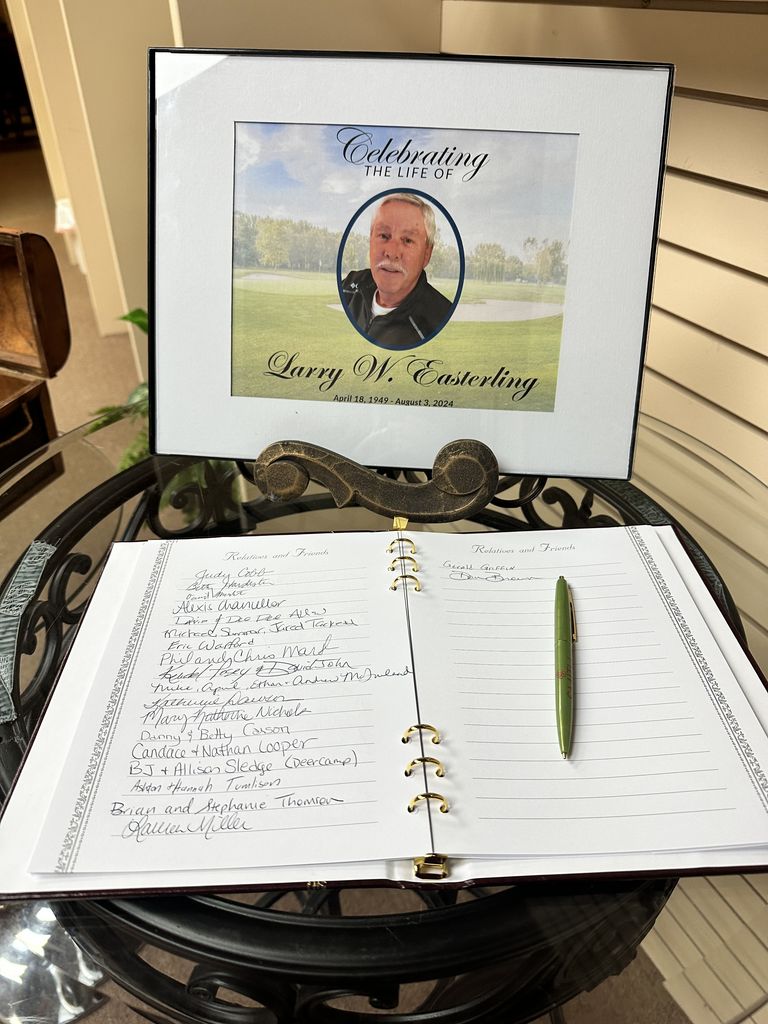 Celebrating
THE LIFE OF
Larry W. Easterling
April 18, 1949 - August 3, 2024
Relatives and Friends
Judy Cobb
Alexis Chancellor
Davin & Dee Dee Allen
Michael Sumner, Jared Tackett
Eric Watford
Phil and Chris Mard
Posey & David John
Mike, April, Ethan & Andrew
Katherine Dawson
Mary Katherine Nichols
Danny & Betty Carson
Candace & Nathan Cooper
BJ & Allison Sledge (Deercamp)
Ashton & Hannah Tumlison
Brian and Stephanie Thomson
Lauren Miller
Relatives and Friends
Gerald Griffin
Brown